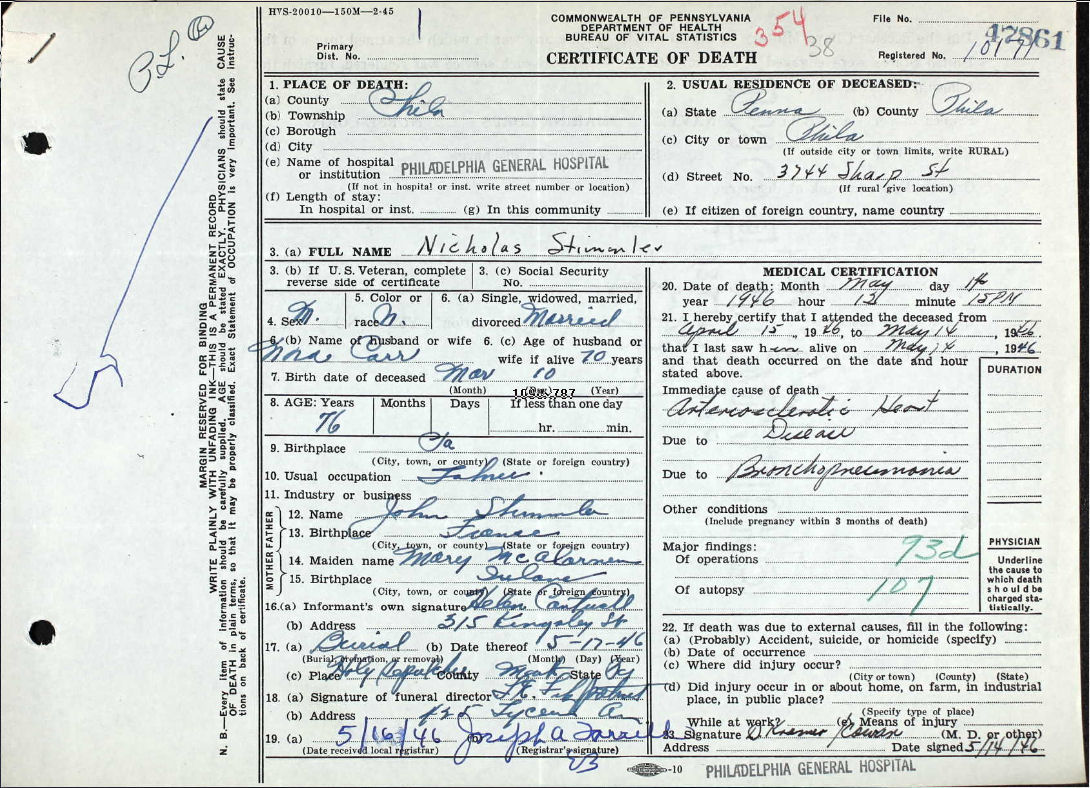 HVS-20010—150M—2-45
COMMONWEALTH OF PENNSYLVANIA
DEPARTMENT OF HEALTH
BUREAU OF VITAL STATISTICS
CERTIFICATE OF DEATH
354
38
Primary
Dist. No.
File No.
47861
Registered No.
WRITE PLAINLY WITH UNFADING INK—THIS IS A PERMANENT RECORD
MARGIN RESERVED FOR BINDING
N. B.—Every item of information should be carefully supplied. AGE should be stated EXACTLY. PHYSICIANS should state CAUSE
OF DEATH in plain terms, so that it may be properly classified. Exact Statement of OCCUPATION is very important. See instruc-
tions on back of certificate.
1. PLACE OF DEATH:
(a) County Phila
(b) Township
(c) Borough
(d) City
(e) Name of hospital
or institution PHILADELPHIA GENERAL HOSPITAL
(If not in hospital or inst. write street number or location)
(f) Length of stay:
In hospital or inst. (g) In this community
2. USUAL RESIDENCE OF DECEASED:
(a) State Penna (b) County Phila
(c) City or town Phila
(If outside city or town limits, write RURAL)
(d) Street No. 3744 Sharp St
(If rural give location)
(e) If citizen of foreign country, name country
3. (a) FULL NAME Nicholas Stimmler
3. (b) If U. S. Veteran, complete
reverse side of certificate
3. (c) Social Security
No.
4. Sex M.
5. Color or
race
6. (a) Single, widowed, married,
divorced Married
6. (b) Name of husband or wife
Nora Carr
6. (c) Age of husband or
wife if alive 70 years
7. Birth date of deceased Mar 10
(Month) (Day) (Year)
8. AGE: Years Months Days If less than one day
76 hr. min.
9. Birthplace Pa
(City, town, or county) (State or foreign country)
10. Usual occupation
11. Industry or business
FATHER
12. Name John Stimmler
13. Birthplace France
(City, town, or county) (State or foreign country)
MOTHER
14. Maiden name Mary
15. Birthplace
(City, town, or county) (State or foreign country)
16.(a) Informant's own signature Helen
(b) Address 315 Kingsley St
17. (a) Burial (b) Date thereof 5-17-46
(Burial, cremation, or removal) (Month) (Day) (Year)
(c) Place Holy Sepulchre County Mont State Pa
18. (a) Signature of funeral director
(b) Address
19. (a) 5/16/46 (b) Joseph A
(Date received local registrar) (Registrar's signature)
MEDICAL CERTIFICATION
20. Date of death: Month May day 14
year 1946 hour 12 minute 15 PM
21. I hereby certify that I attended the deceased from
April 15, 1946, to May 14, 1946
that I last saw him alive on May 14, 1946
and that death occurred on the date and hour
stated above.
DURATION
Immediate cause of death
Arteriosclerotic Heart
Due to Disease
Due to Bronchopneumonia
Other conditions
(Include pregnancy within 3 months of death)
Major findings:
Of operations 93d
Of autopsy 107
PHYSICIAN
Underline
the cause to
which death
should be
charged sta-
tistically.
22. If death was due to external causes, fill in the following:
(a) (Probably) Accident, suicide, or homicide (specify)
(b) Date of occurrence
(c) Where did injury occur?
(City or town) (County) (State)
(d) Did injury occur in or about home, on farm, in industrial
place, in public place?
(Specify type of place)
While at work? (e) Means of injury
23. Signature (M. D. or other)
Address Date signed 5/14/46
-10
PHILADELPHIA GENERAL HOSPITAL